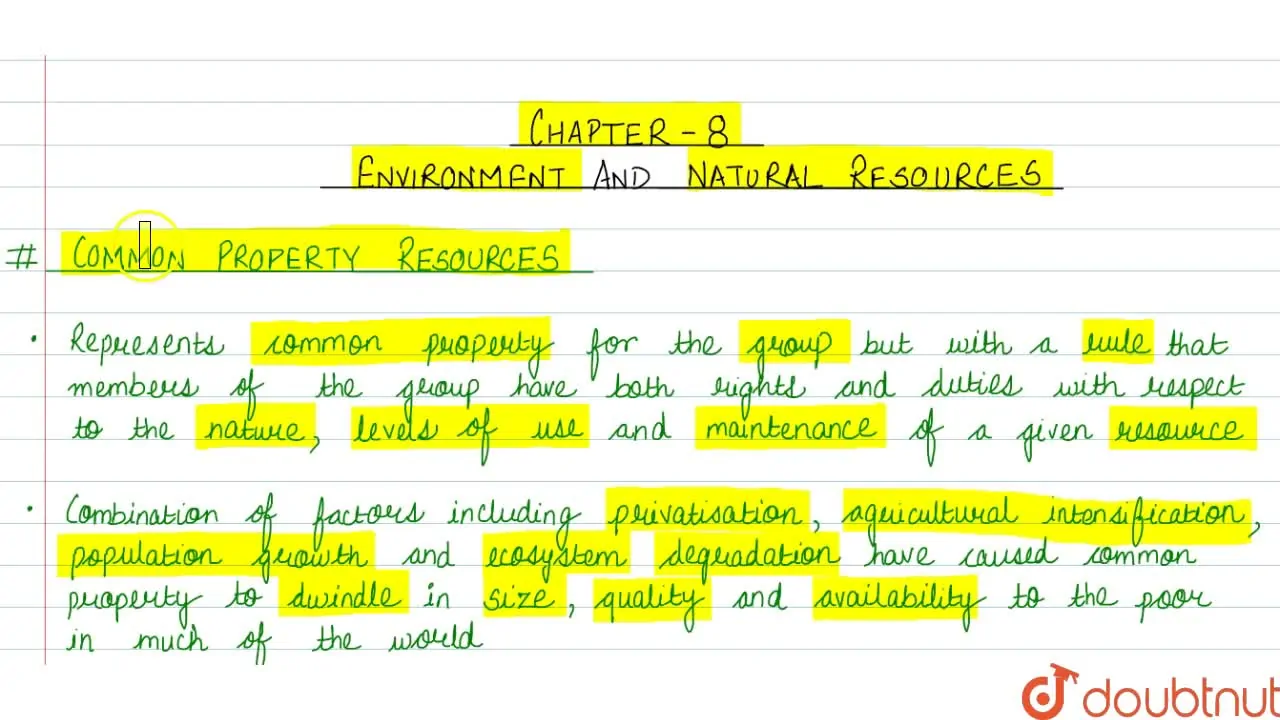 CHAPTER - 8
ENVIRONMENT AND NATURAL RESOURCES
# COMMON PROPERTY RESOURCES
· Represents common property for the group but with a rule that
members of the group have both rights and duties with respect
to the nature, levels of use and maintenance of a given resource
· Combination of factors including privatisation, agricultural intensification,
population growth and ecosystem degradation have caused common
property to dwindle in size, quality and availability to the poor
in much of the world
doubtnut